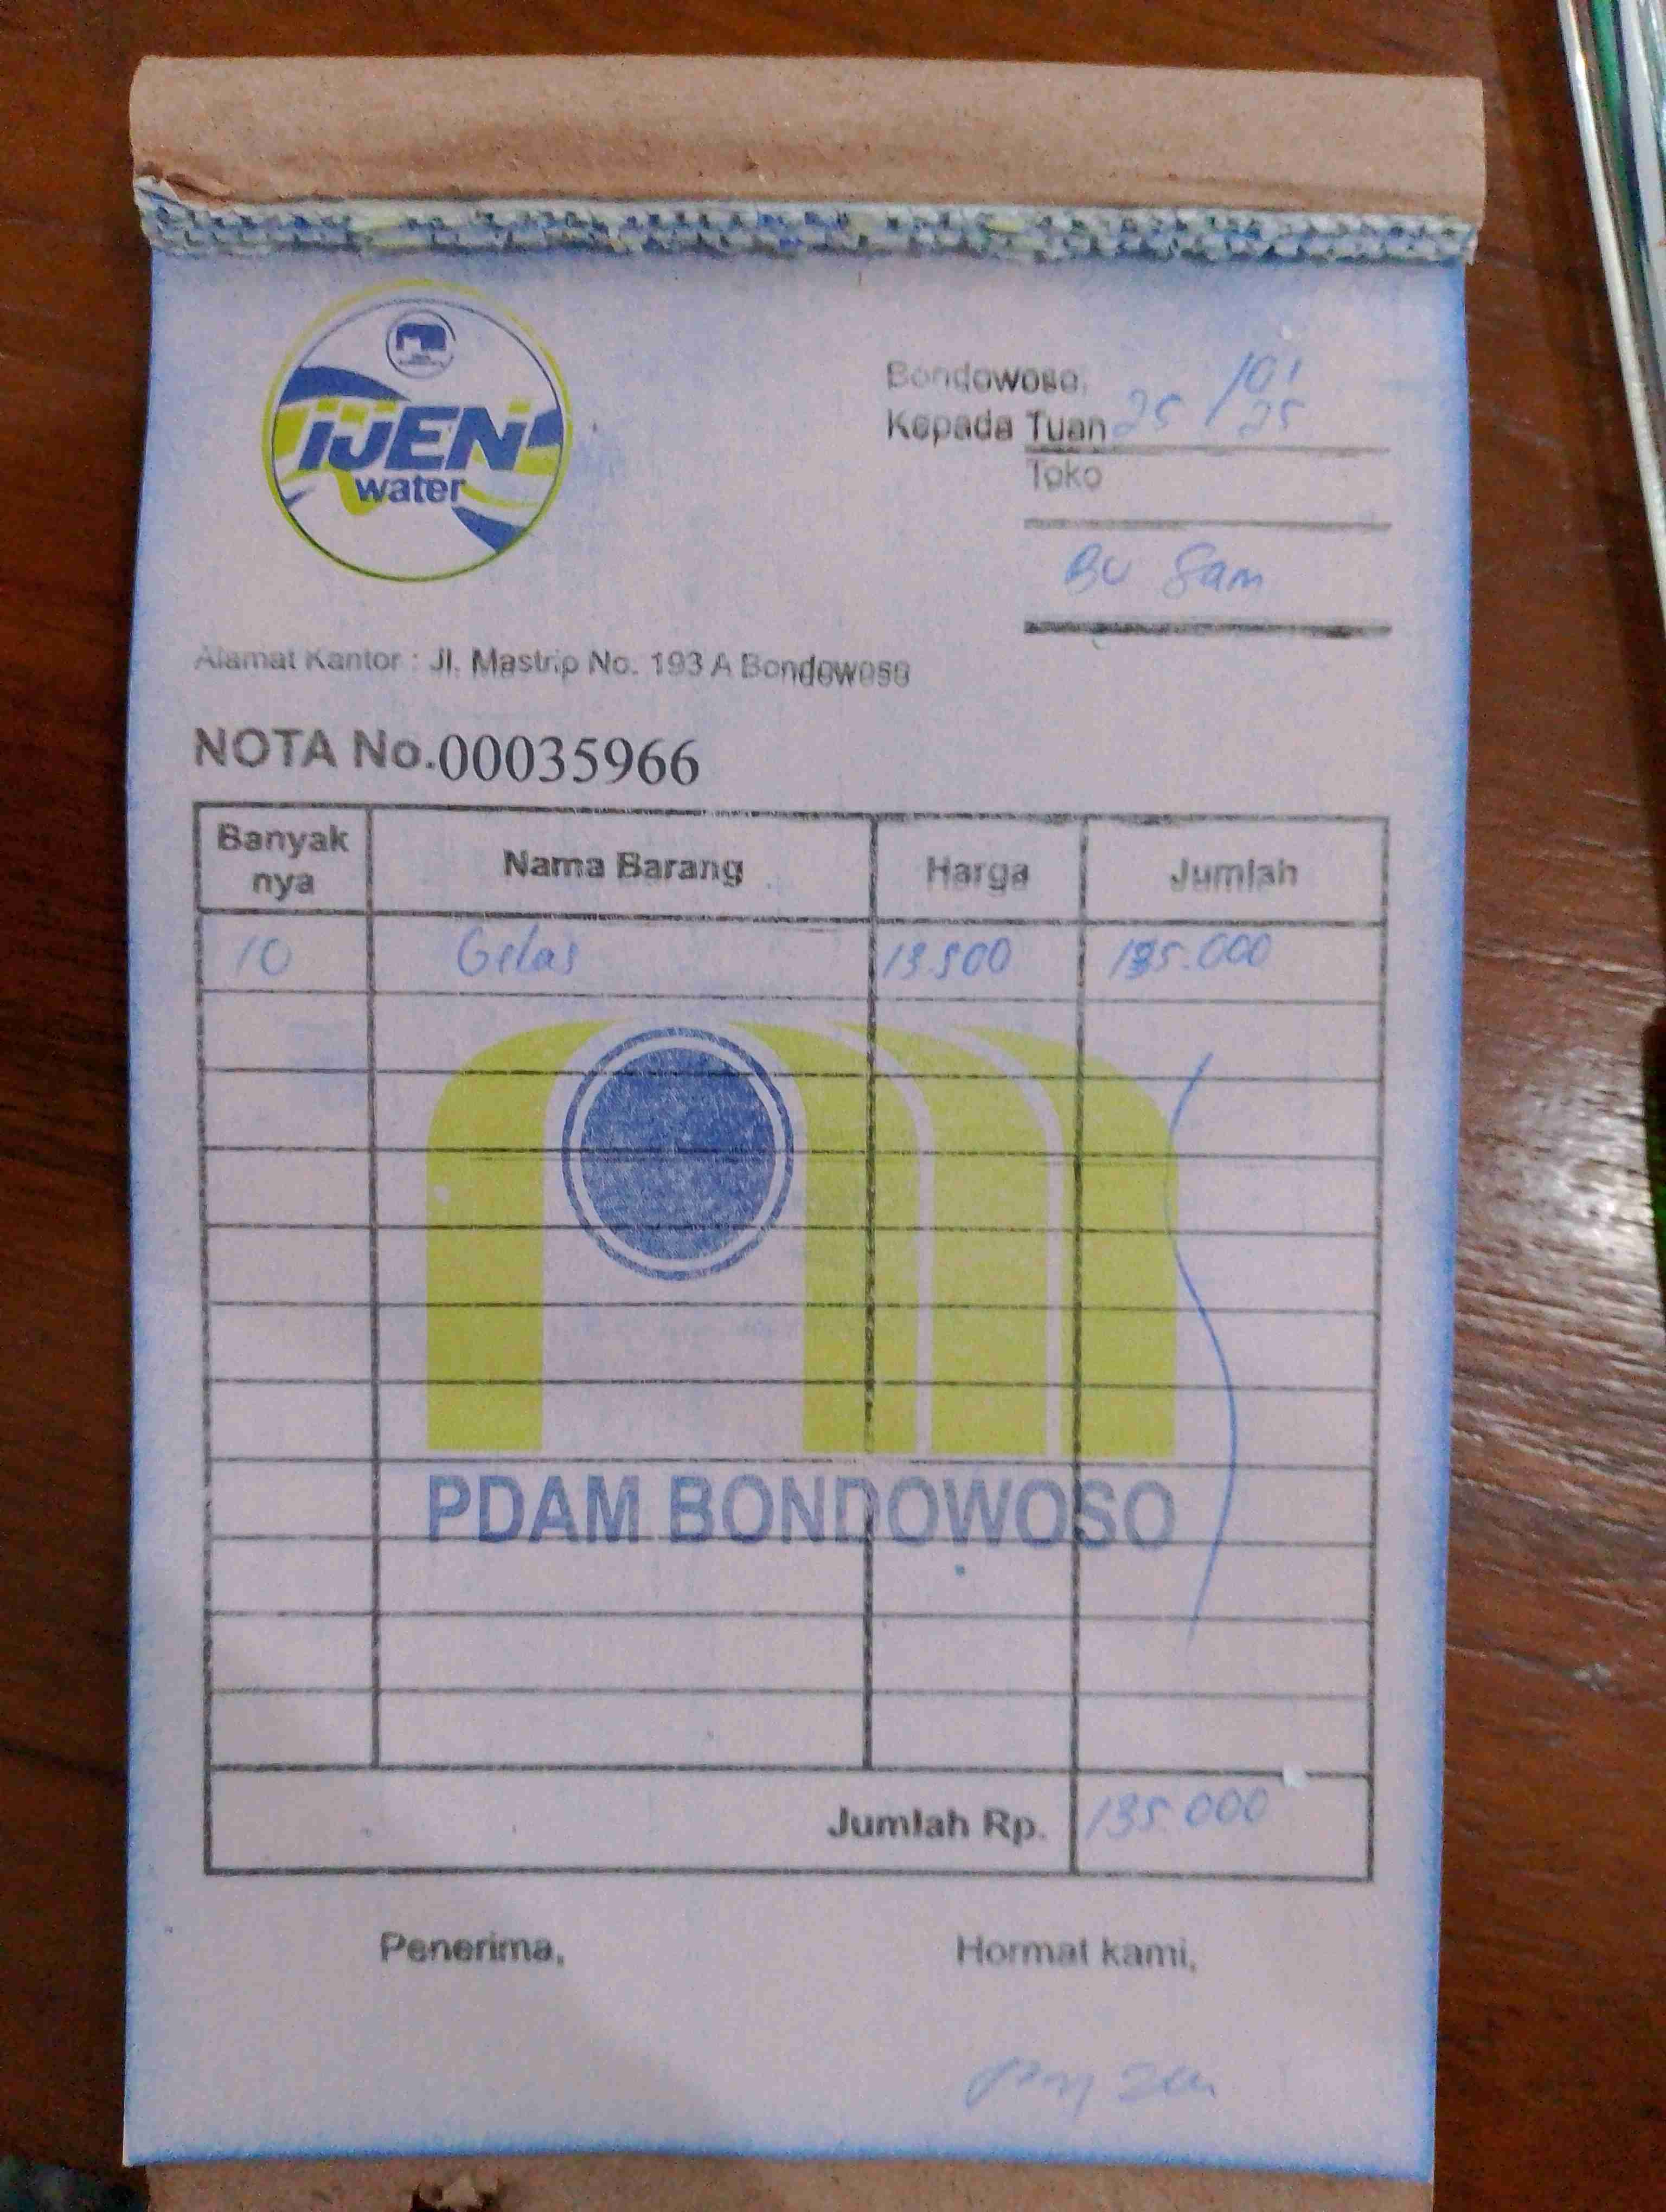 IJEN
water
Bondowoso, 25/01/25
Kepada Tuan
Toko
Bu Sam
Alamat Kantor : Jl. Mastrip No. 193 A Bondowoso
NOTA No.00035966
Banyak nya Nama Barang Harga Jumlah
10 Gelas 13.500 135.000
PDAM BONDOWOSO
Jumlah Rp. 135.000
Penerima, Hormat kami,